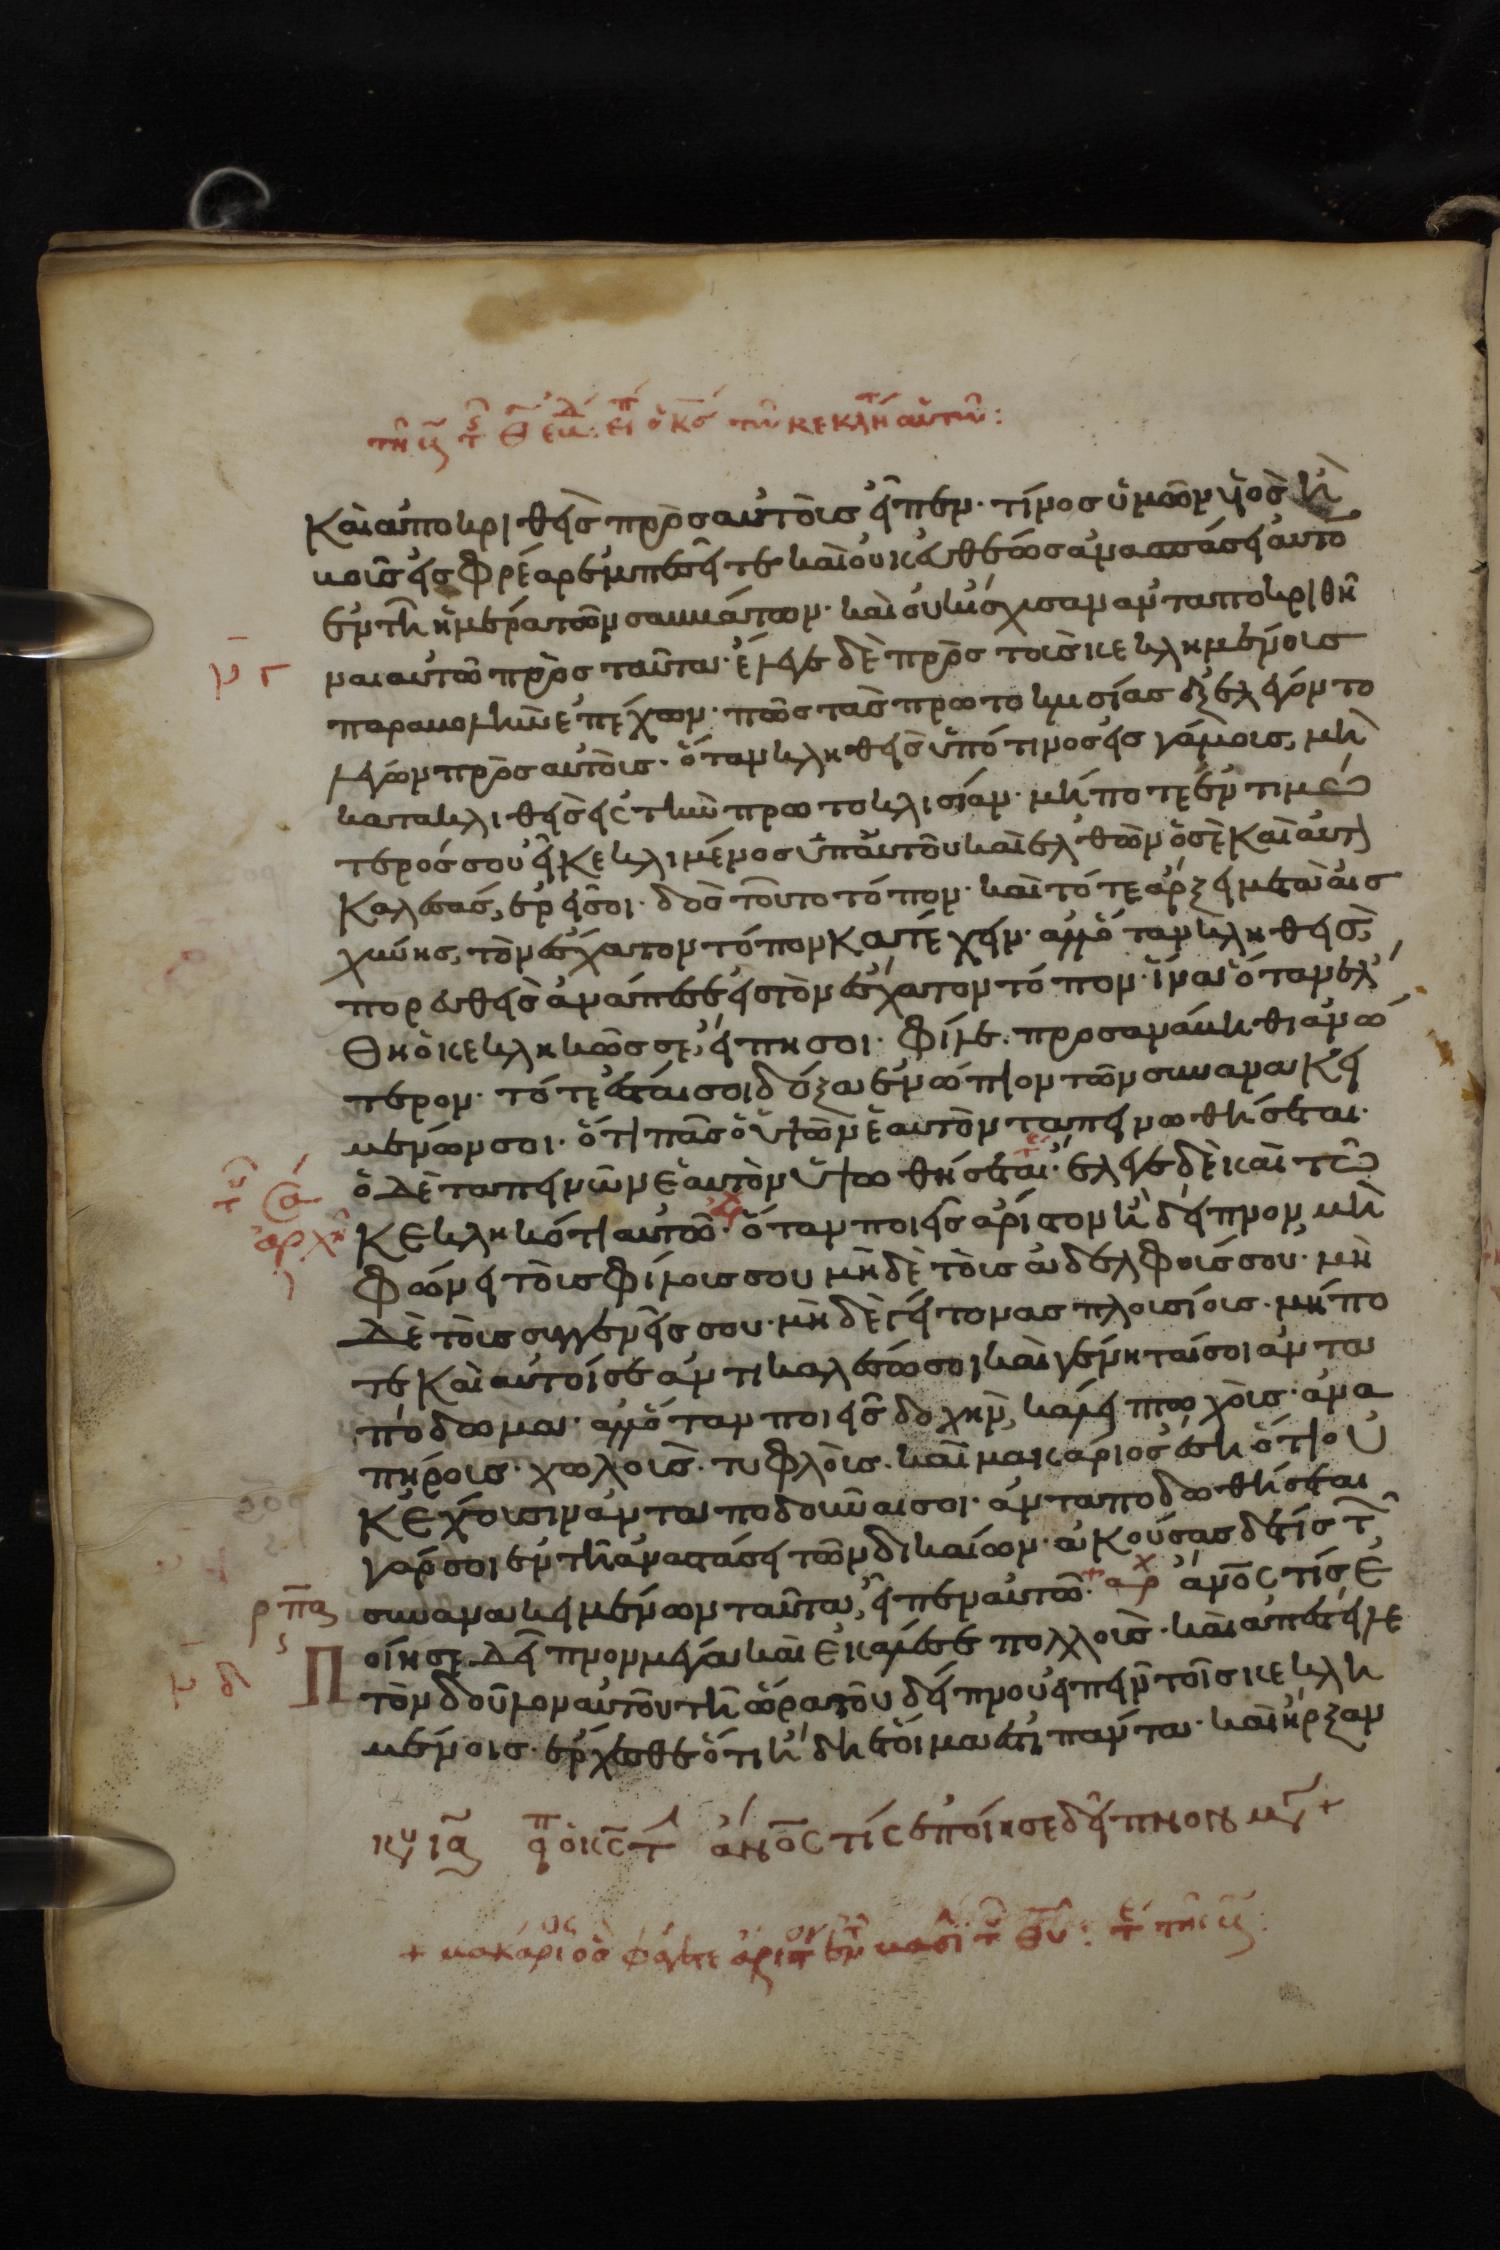 Καὶ ἀποκριθεὶς πρὸς αὐτοὺς εἶπεν· τίνος ὑμῶν υἱὸς ἢ
βοῦς εἰς φρέαρ ἐμπεσεῖτε καὶ οὐκ εὐθέως ἀνασπάσει αὐτὸ
ἐν τῆ ἡμέρα τῶν σαββάτων· καὶ οὐκ ἴσχυσαν ἀνταποκριθῆ
ναι αὐτῶ πρὸς ταῦτα· ἔλεγε δὲ πρὸς τοὺς κεκλημένους
ν γ
παραβολὴν ἐπέχων· πῶς τὰς πρωτοκλισίας ἐξελέγοντο
λέγων πρὸς αὐτούς· ὅταν κληθεὶς ὑπό τινος εἰς γάμους, μὴ
κατακλιθεὶς εἰς τὴν πρωτοκλισίαν· μήποτε ἐντιμό
τερός σου εἶ κεκλιμένος ὑπ αὐτοῦ καὶ ἐλθὼν ὁ σὲ καὶ αὐτ
καλέσας, ἐρεῖ σοι· δὸς τούτο τόπον· καὶ τότε ἄρξει μετὰ αἰσ
χύνης, τὸν ἔσχατον τόπον κατέχειν· ἀλλ ὅταν κληθεὶς,
πορευθεὶς ἀνάπεσε εἰς τὸν ἔσχατον τόπον· ἵνα ὅταν ἔλ
θη ὁ κεκληκώς σε, εἴπη σοι· φίλε· προσανάβηθι ἀνώ
τερον· τότε ἔσται σοι δόξα ἐνώπιον τῶν συνανακει
μένων σοι· ὅτι πᾶς ὁ ὑψῶν ἑαυτὸν ταπεινωθήσεται·
ὁ δὲ ταπεινῶν ἑαυτὸν ὑψωθήσεται· ἔλεγε δὲ καὶ τῶ
ἀρχὴ
κεκληκότι αὐτῶ· ὅταν ποιεῖς ἄριστον ἢ δεῖπνον, μὴ
φώνει τοὺς φίλους σου μὴ δὲ τοὺς ἀδελφούς σου· μὴ
δὲ τοὺς συγγενεῖς σου· μὴ δὲ γείτονας πλουσίους· μήπο
τε καὶ αὐτοί σε ἀντικαλέσωσι καὶ γένηταί σοι ἀντα
πόδομα· ἀλλ ὅταν ποιεῖς δοχὴν, κάλει πτωχούς· ἀνα
πήρους· χωλούς· τυφλούς· καὶ μακάριος ἔση ὅτι οὐ
κ ἔχουσιν ἀνταποδοῦναι σοι· ἀνταποδοθήσεται
γάρ σοι ἐν τῆ ἀναστάσει τῶν δικαίων· ἀκούσας δέ τις τῶ
συνανακειμένων ταῦτα, εἶπεν αὐτῶ· + αρχ ἄνος τίς ἐ
ρπα
Ποίησε δεῖπνον μέγα καὶ ἐκάλεσε πολλούς· καὶ ἀπέστειλε
δ
τὸν δοῦλον αὐτοῦ τῆ ὥρα τοῦ δείπνου εἰπεῖν τοῖς κεκλη
μένοις· ἔρχεσθε ὅτι ἤδη ἕτοιμα ἐστι πάντα· καὶ ἤρξαν
κυ ια εἶπ ὁ κς τ ἄνος τίς ἐποίησε δεῖπνον μγ +